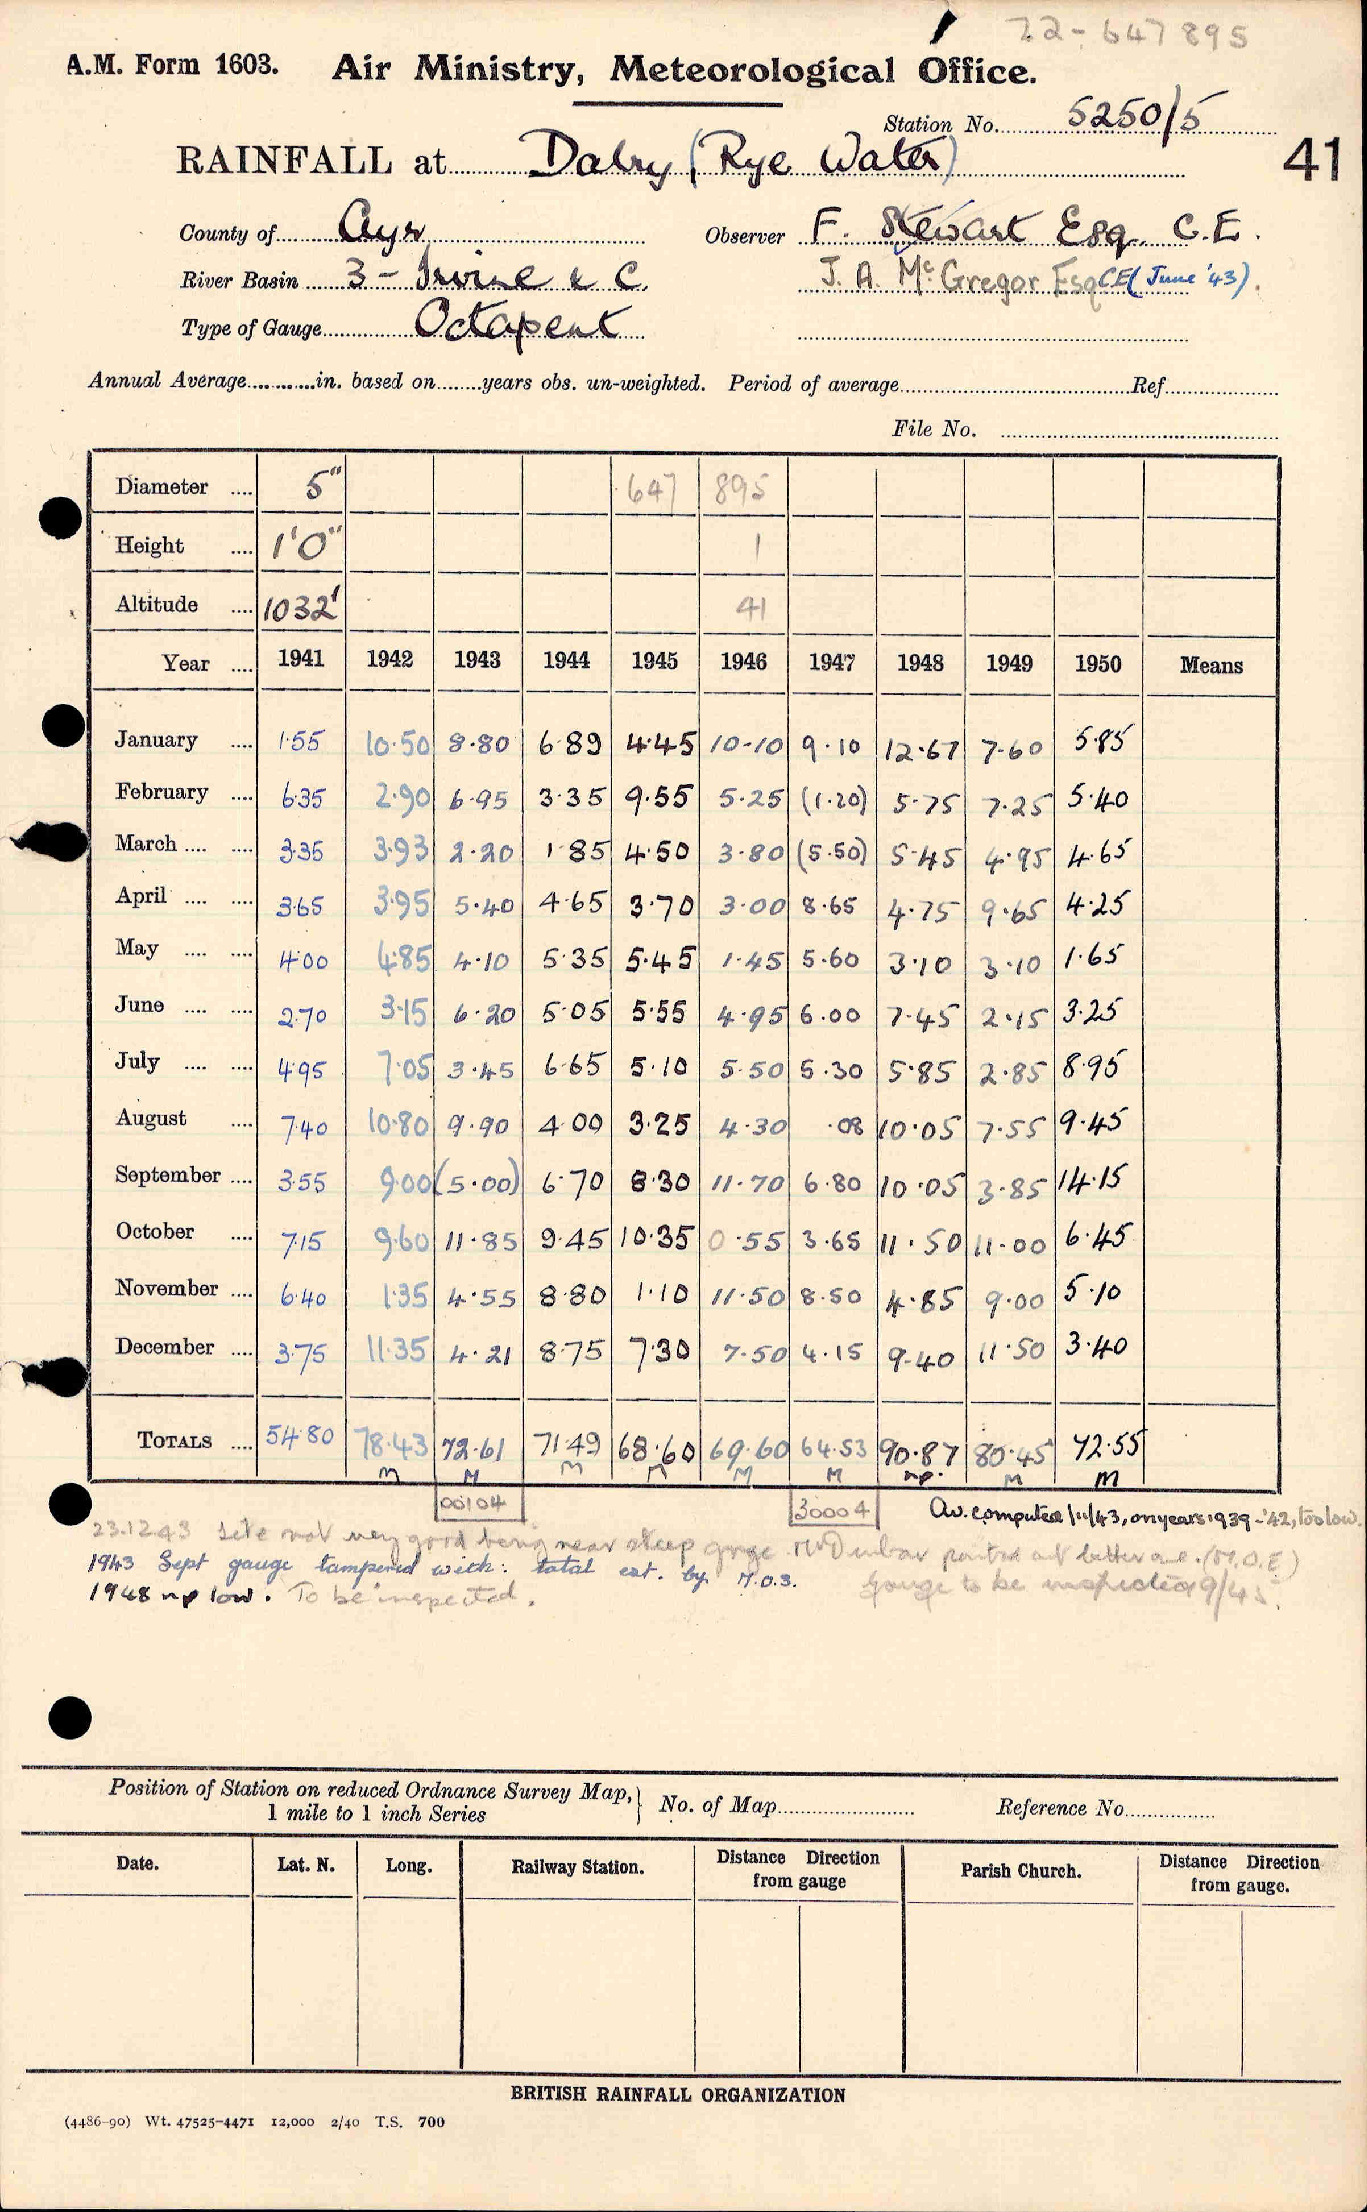 22-647895
A.M. Form 1603. Air Ministry, Meteorological Office.
Station No. 5250/5
RAINFALL at Dalry (Rye Water) 41
County of Ayr Observer F. Stewart Esq. C.E.
River Basin 3 - Irvine & C. J. A. McGregor Esq CE (June '43).
Type of Gauge Octapent
Annual Average in. based on years obs. un-weighted. Period of average Ref.
File No.
Diameter 5" 647 895
Height 1'0" 1
Altitude 1032' 41
Year 1941 1942 1943 1944 1945 1946 1947 1948 1949 1950 Means
January 1.55 10.50 8.80 6.89 4.45 10.10 9.10 12.67 7.60 5.85
February 6.35 2.90 6.95 3.35 9.55 5.25 (1.20) 5.75 7.25 5.40
March 3.35 3.93 2.20 1.85 4.50 3.80 (5.50) 5.45 4.95 4.65
April 3.65 3.95 5.40 4.65 3.70 3.00 8.65 4.75 9.65 4.25
May 4.00 4.85 4.10 5.35 5.45 1.45 5.60 3.10 3.10 1.65
June 2.70 3.15 6.20 5.05 5.55 4.95 6.00 7.45 2.15 3.25
July 4.95 7.05 3.45 6.65 5.10 5.50 5.30 5.85 2.85 8.95
August 7.40 10.80 9.90 4.00 3.25 4.30 .08 10.05 7.55 9.45
September 3.55 9.00 (5.00) 6.70 8.30 11.70 6.80 10.05 3.85 14.15
October 7.15 9.60 11.85 9.45 10.35 0.55 3.65 11.50 11.00 6.45
November 6.40 1.35 4.55 8.80 1.10 11.50 8.50 4.85 9.00 5.10
December 3.75 11.35 4.21 8.75 7.30 7.50 4.15 9.40 11.50 3.40
TOTALS 54.80 78.43 72.61 71.49 68.60 69.60 64.53 90.87 80.45 72.55
M M M M M M np. M M
00104 30004 Av. computed 1/11/43, on years 1939-'42, too low.
23.12.43 Site not very good being near steep gorge. Mr Dunbar pointed out better one. (M.O.E)
1943 Sept gauge tampered with: total est. by M.O.3. Gauge to be inspected 9/45.
1948 np low. To be inspected.
Position of Station on reduced Ordnance Survey Map, 1 mile to 1 inch Series } No. of Map Reference No.
Date. Lat. N. Long. Railway Station. Distance Direction from gauge Parish Church. Distance Direction from gauge.
BRITISH RAINFALL ORGANIZATION
(4486-90) Wt. 47525-4471 12,000 2/40 T.S. 700